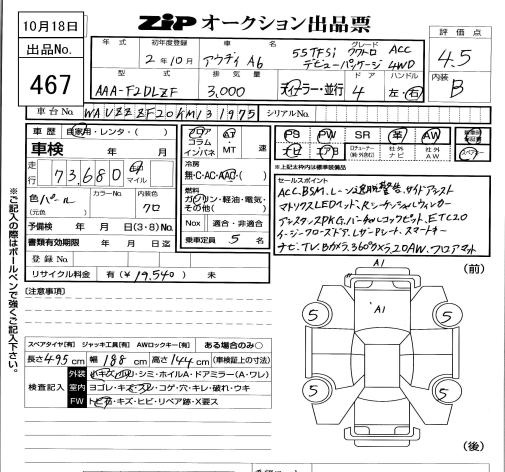 10月18日
出品No.
467
ZIP オークション出品票
評価点
4.5
内装
B
年式 初年度登録 車名 グレード
2年10月 アウディ A6 55TFSi クワトロ ACC
デビューパッケージ 4WD
型式 排気量 ドア ハンドル
AAA-F2DLZF 3,000 ディーラー・並行 4 左・右
車台No. WAUZZZF20KN131975 シリアルNo.
車歴 自家用・レンタ・( )
車検 年 月
走行 73,680 km マイル
色 パール カラーNo. 内装色 クロ
(元色)
予備検 年 月 日 (3・8) No.
書類有効期限 年 月 日迄
登録No.
リサイクル料金 有(¥19,540) 未
フロア コラム インパネ
AT・MT 速
冷房
無・C・AC・AAC・( )
燃料
ガソリン・軽油・電気・その他( )
Nox 適合・非適合
乗車定員 5 名
PS PW SR 革 AW
ナビ TV
社外ナビ 社外AW
※上記太枠内は標準装備品
セールスポイント
ACC.BSM.レーン逸脱警告.サイドアシスト
マトリクスLEDヘット.パシーケンシャルウィンカー
アシスタンスPKG.バーチャルコックピット.ETC2.0
イージークローズドア.レザーシート.スマートキー
ナビ.TV.Bカメラ.360°カメラ.20AW.フロアマット
※ご記入の際はボールペンで強くご記入下さい。
[注意事項]
A1
(前)
A1
5
5
5
5
(後)
スペアタイヤ[有] ジャッキ工具[有] AWロックキー[有] ある場合のみ○
長さ495cm 幅188cm 高さ144cm (車検証上の寸法)
検査記入
外装 小キズ・凹・シミ・ホイルA・ドアミラー(A・ワレ)
室内 ヨゴレ・キズ・スレ・コゲ・穴・キレ・破れ・ウキ
FW トビ石・キズ・ヒビ・リペア跡・X要ス